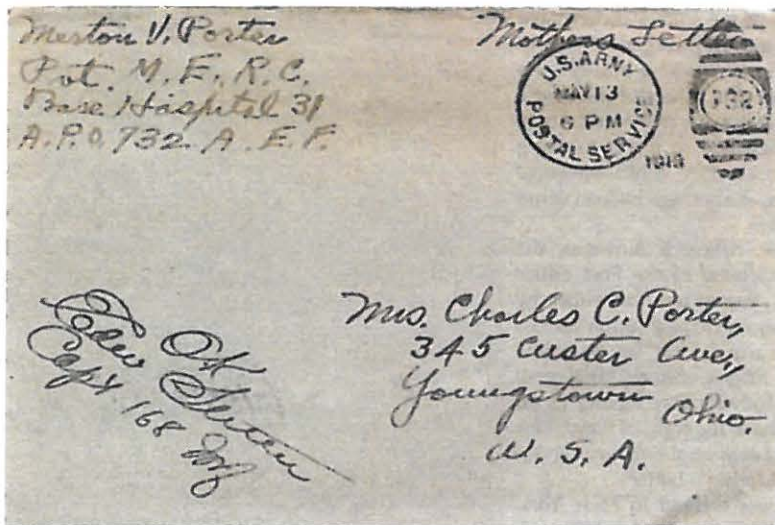 Merton V. Porter
Pvt. M. E. R. C.
Base Hospital 31
A.P.O. 732 A. E. F.
Mothers Letter
U.S. ARMY
MAY 13
6 PM
POSTAL SERVICE
732
OK
Capt. 168 Inf
Mrs. Charles C. Porter,
345 Custer Ave.,
Youngstown
Ohio.
U. S. A.